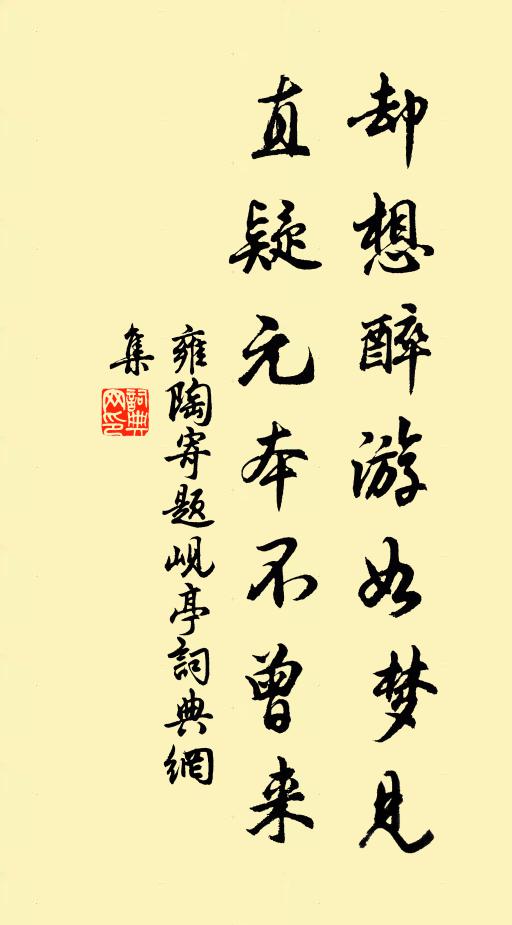 却想醉游如梦见
直疑元本不曾来
雍陶寄题岘亭詞典網
集
詞典
网印